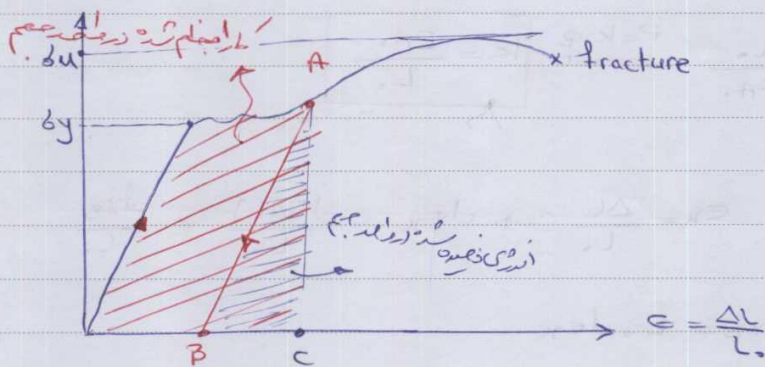 کار انجام شده در واحد حجم
σu
A
fracture
σy
انرژی ذخیره شده در واحد حجم
B
C
ϵ = ΔL / L₀